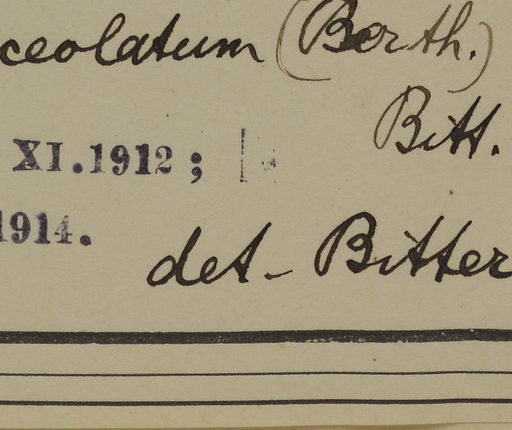 ceolatum (Berth.)
Bitt.
XI.1912;
1914.
det- Bitter